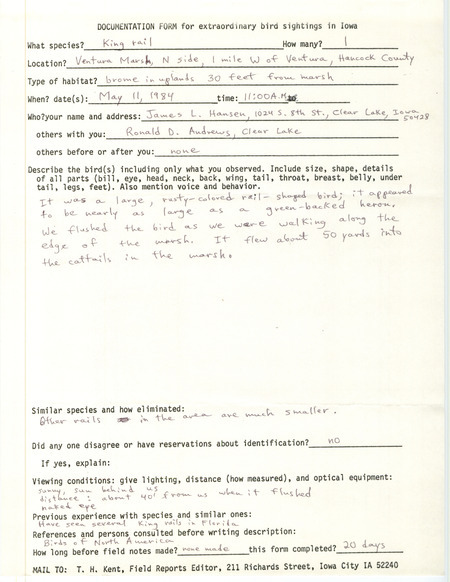 DOCUMENTATION FORM for extraordinary bird sightings in Iowa
What species? King rail How many? 1
Location? Ventura Marsh, N side, 1 mile W of Ventura, Hancock County
Type of habitat? brome in uplands 30 feet from marsh
When? date(s): May 11, 1984 time: 11:00A.M.
Who?your name and address: James L. Hansen, 1024 S. 8th St., Clear Lake, Iowa
50428
others with you: Ronald D. Andrews, Clear Lake
others before or after you: none
Describe the bird(s) including only what you observed. Include size, shape, details
of all parts (bill, eye, head, neck, back, wing, tail, throat, breast, belly, under
tail, legs, feet). Also mention voice and behavior.
It was a large, rusty-colored rail-shaped bird; it appeared
to be nearly as large as a green-backed heron.
We flushed the bird as we were walking along the
edge of the marsh. It flew about 50 yards into
the cattails in the marsh.
Similar species and how eliminated:
Other rails in the area are much smaller.
Did any one disagree or have reservations about identification? no
If yes, explain:
Viewing conditions: give lighting, distance (how measured), and optical equipment:
sunny, sun behind us
distance: about 40' from us when it flushed
naked eye
Previous experience with species and similar ones:
Have seen several King rails in Florida
References and persons consulted before writing description:
Birds of North America
How long before field notes made? none made this form completed? 20 days
MAIL TO: T. H. Kent, Field Reports Editor, 211 Richards Street, Iowa City IA 52240